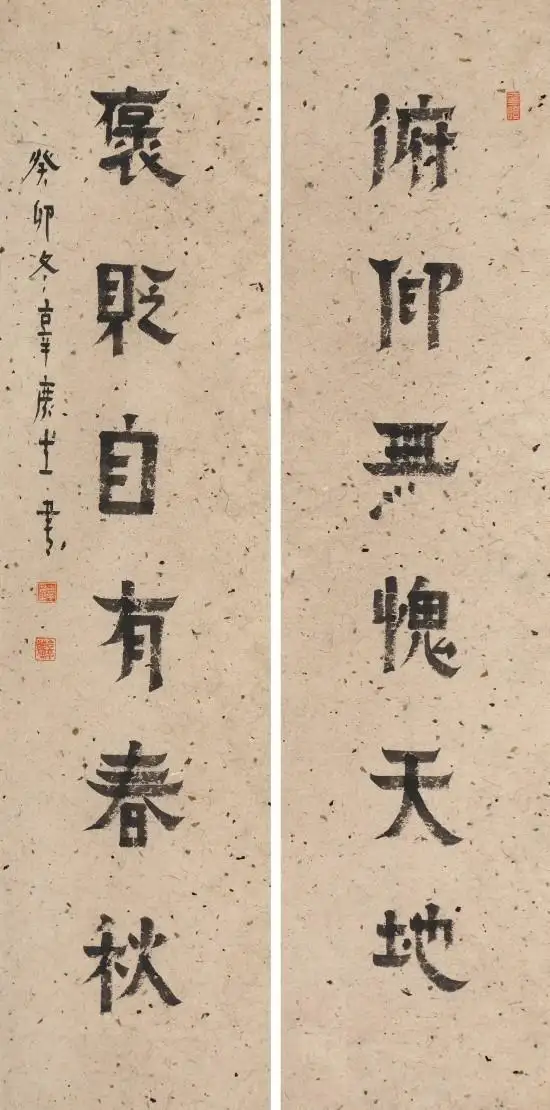 俯仰無愧天地
褒貶自有春秋
癸卯冬辛庚生書